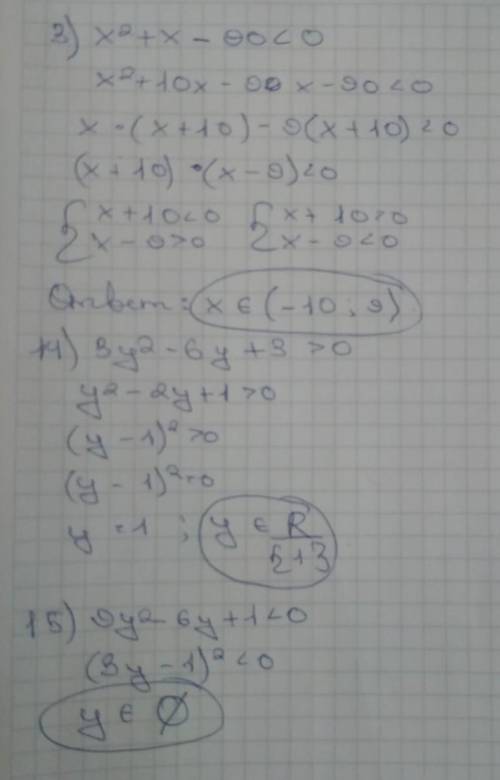 3) x² + x - 90 < 0
x² + 10x - 90 x - 90 < 0
x · (x + 10) - 9(x + 10) < 0
(x + 10) · (x - 9) < 0
{ x + 10 < 0 { x + 10 > 0
x - 9 > 0 x - 9 < 0
Ответ: x ∈ (-10; 9)
14) 3y² - 6y + 3 > 0
y² - 2y + 1 > 0
(y - 1)² > 0
(y - 1)² = 0
y = 1 ; y ∈ R
{1}
15) 9y² - 6y + 1 < 0
(3y - 1)² < 0
y ∈ ∅